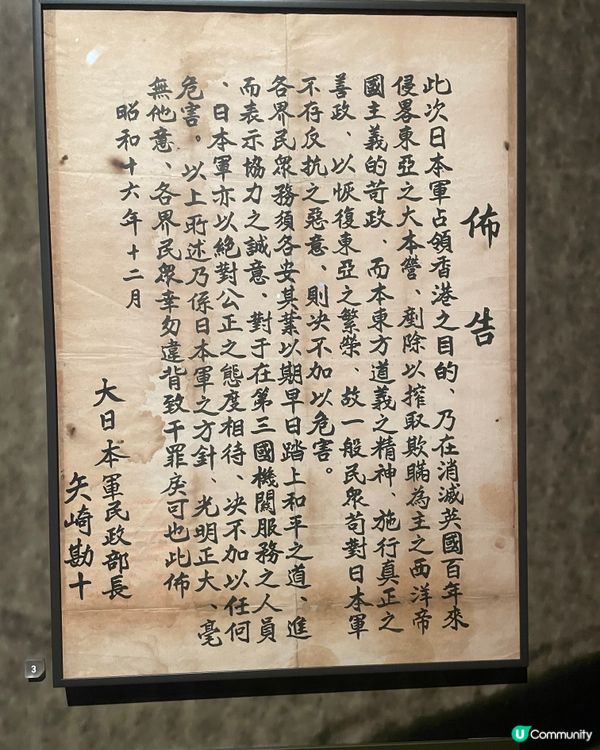 佈告
此次日本軍占領香港之目的、乃在消滅英國百年來
侵畧東亞之大本營、剷除以搾取欺瞞為主之西洋帝
國主義的苛政、而本東方道義之精神、施行真正之
善政、以恢復東亞之繁榮、故一般民眾苟對日本軍
不存反抗之惡意、則决不加以危害。
各界民眾務須各安其業以期早日踏上和平之道、進
而表示協力之誠意、對于在第三國機關服務之人員
、日本軍亦以絕對公正之態度相待、决不加以任何
危害。以上所述乃係日本軍之方針、光明正大、毫
無他意、各界民眾幸勿違背致干罪戾可也此佈
昭和十六年十二月
大日本軍民政部長
矢崎勘十
3
U Community